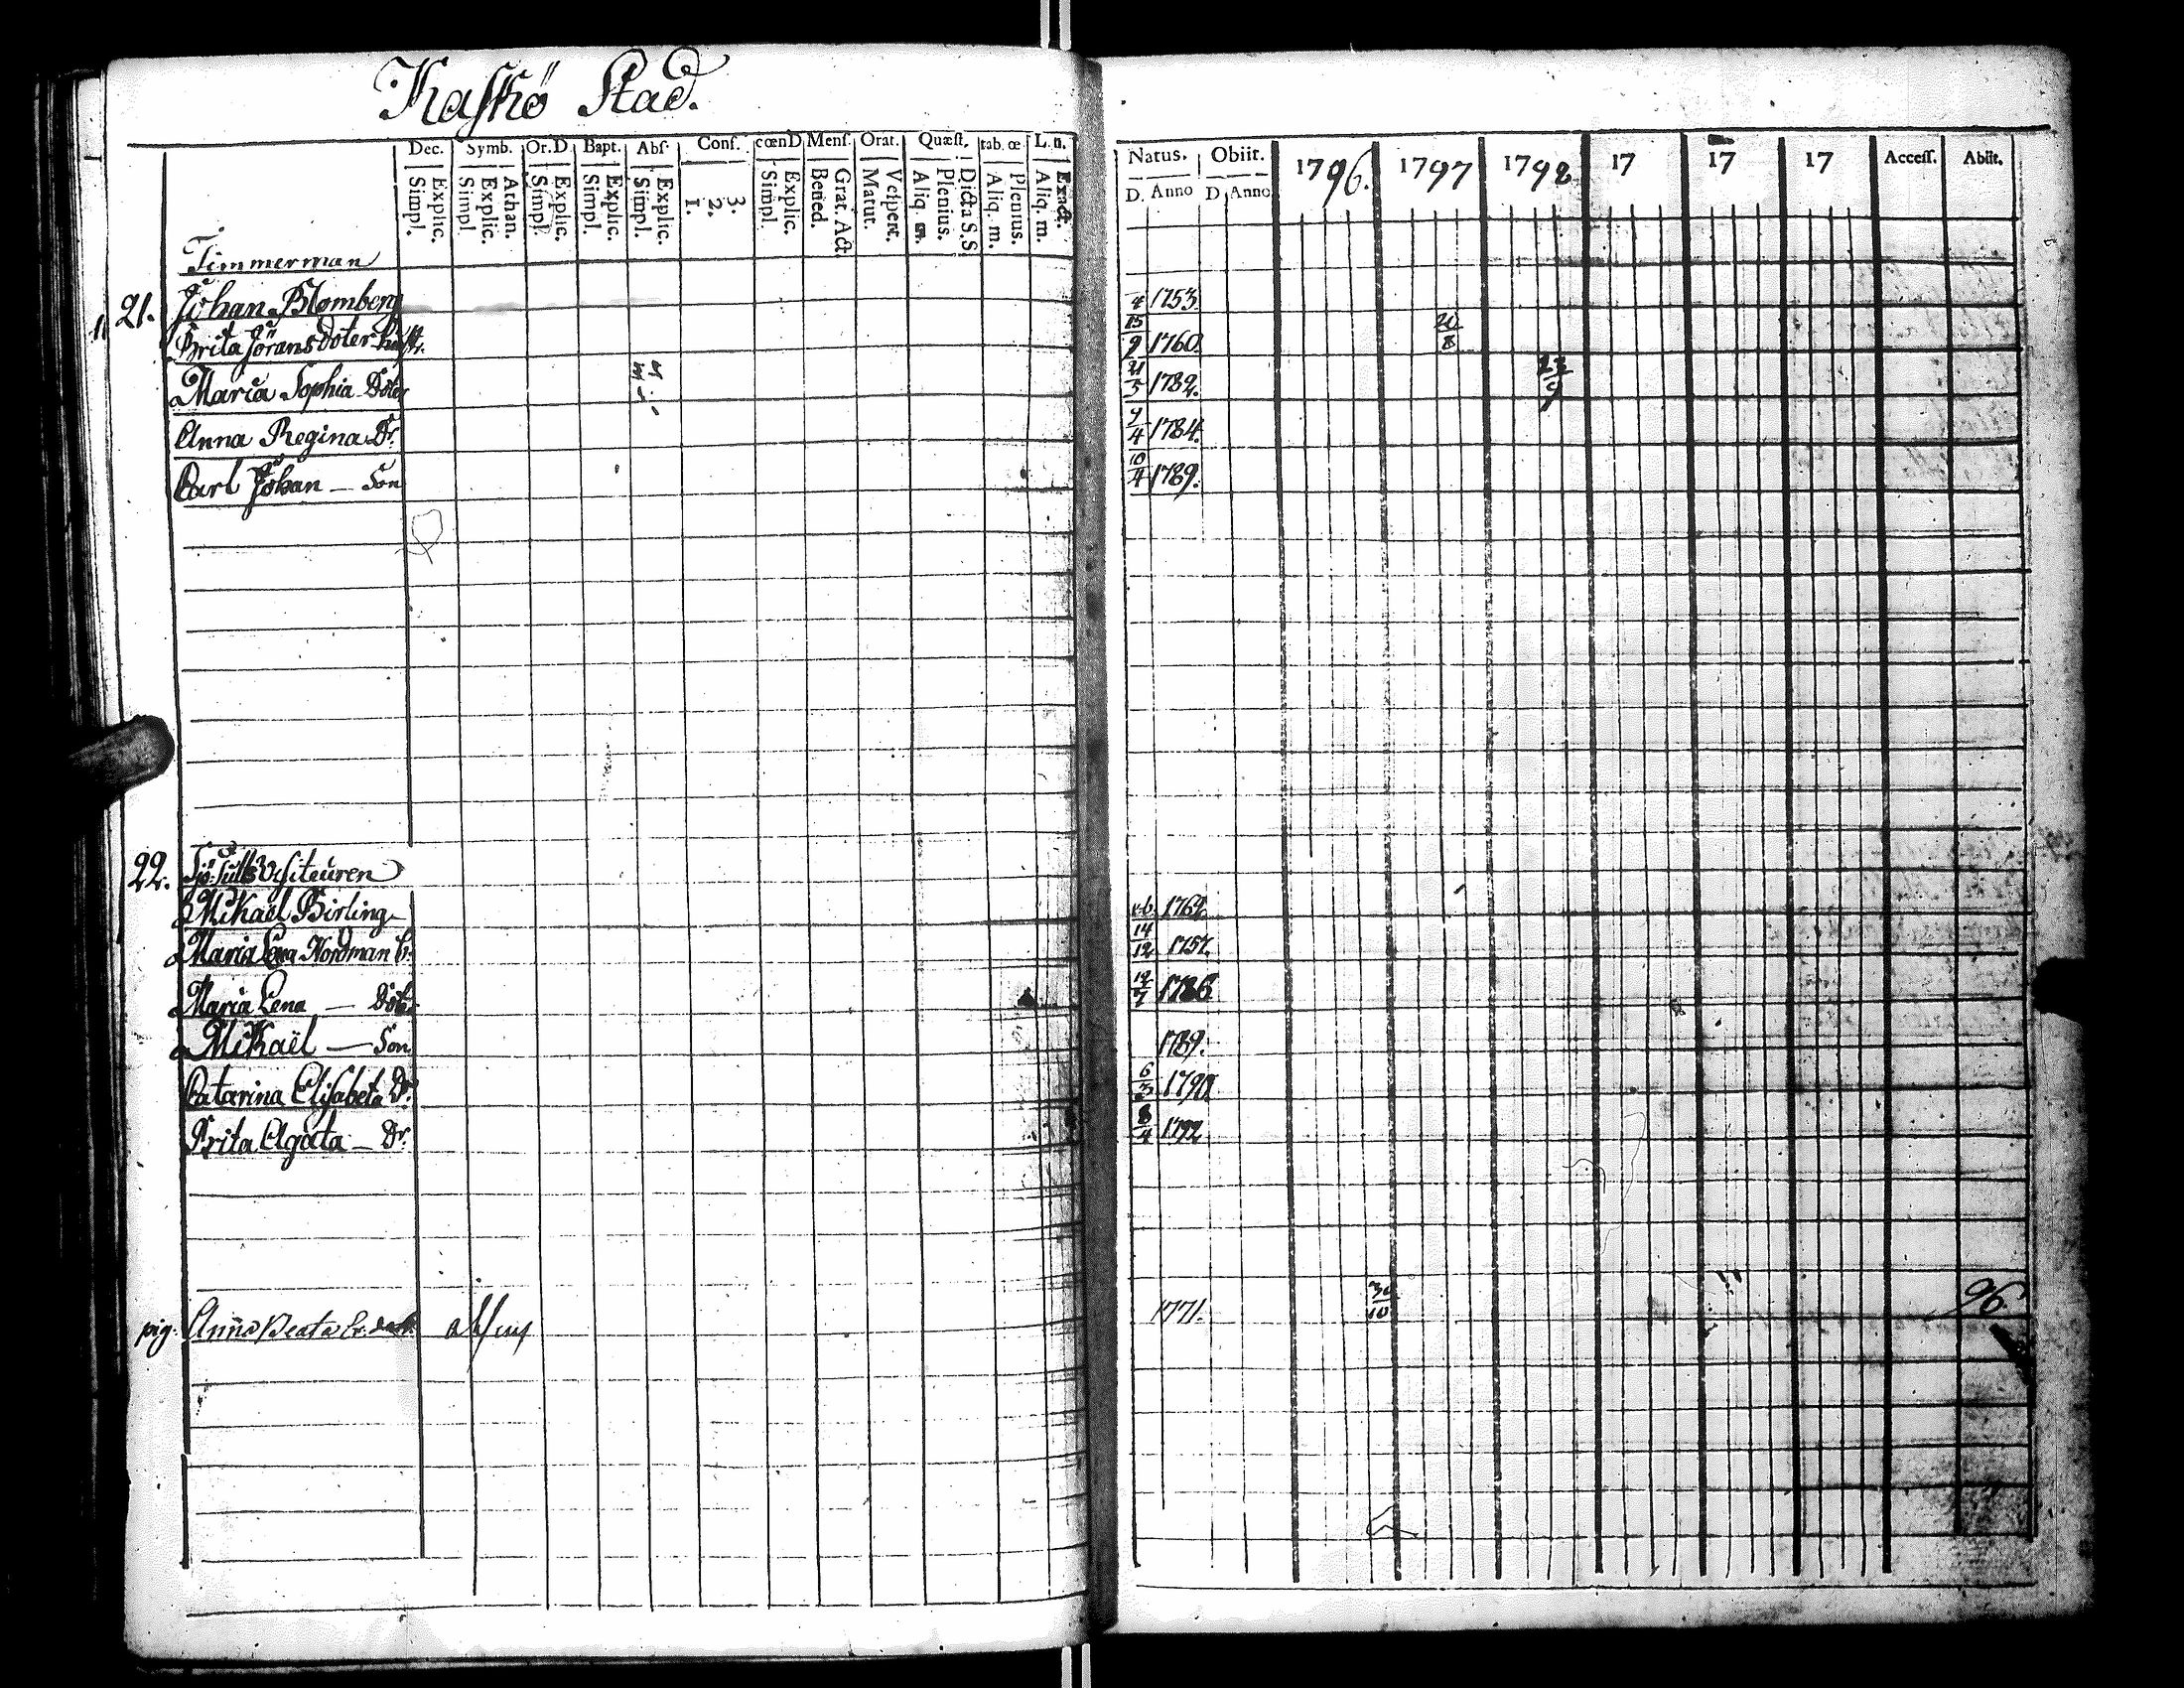 Kaskö Stad.
Dec. Symb. Or.D. Bapt. Abs. Conf. cœnD Mens. Orat. Quæst. tab. œ L. n.
Simpl. Explic. Simpl. Explic. Athan. Simpl. Explic. Simpl. Explic. Simpl. Explic. 1. 2. 3. Simpl. Explic. Bened. Grat. Act. Matut. Vespert. Aliq. m. Plenius. Dicta S.S Aliq. m. Plenius. Aliq. m. Exact.
Natus. Obiit. 1796. 1797 1798 17 17 17 Access. Abiit.
D. Anno D. Anno
Timmerman
21. Johan Blomberg 4 1753.
Brita Jöransdoter hust. 15/9 1760. 8
Maria Sophia Doter 21/5 1782. 23/9
Anna Regina Dr. 9/4 1784.
Carl Johan — Son 10/4 1789.
22. Sjö-Tulls Visiteuren
Mikael Birling
Maria Nordman h. 14/12 1757.
Maria Lena — Dotr. 12/7 1786
Mikaël — Son 1789.
Catarina Elisabeta Dr. 6/3 1790
Brita Agata — Dr. 8/4 1792
pig. Anna Beata 1771. 30/10 96.